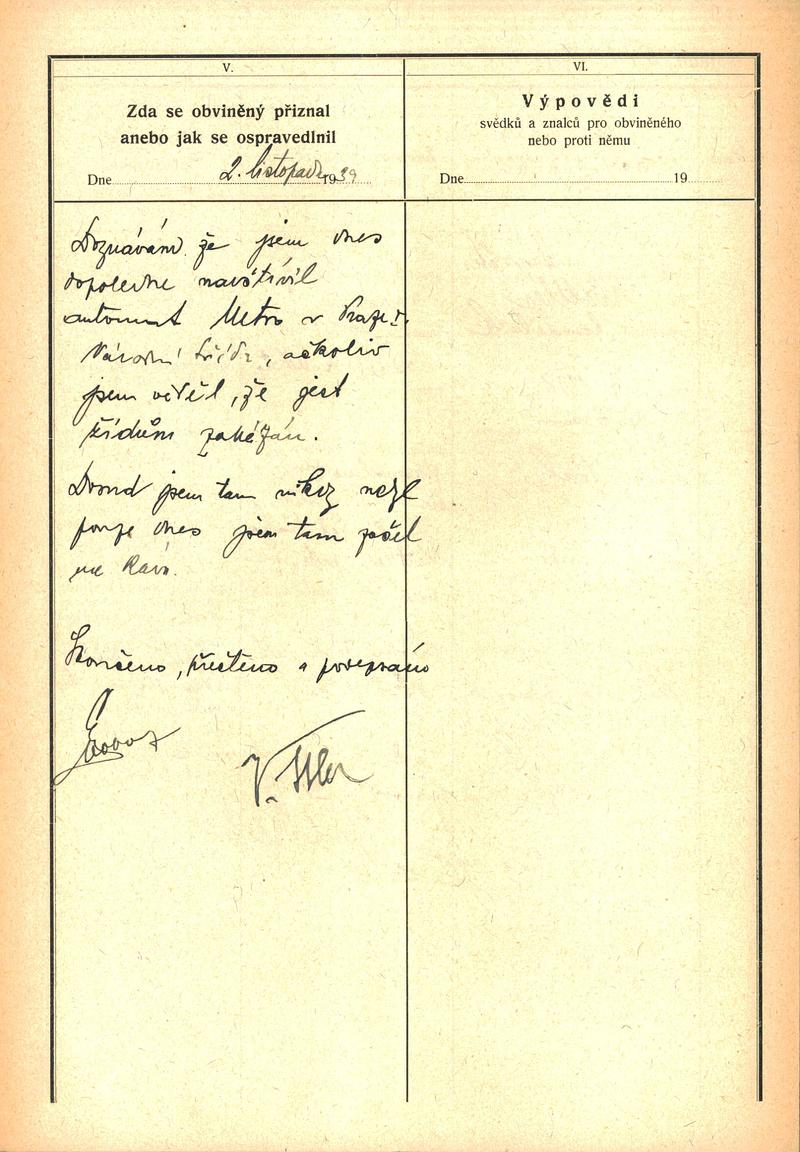 V.
Zda se obviněný přiznal
anebo jak se ospravedlnil
Dne 2. listopadu 1939
Doznávám že jsem dnes
dopoledne navštívil
automat Metro v Praze I.
Národní třída, ačkoliv
jsem věděl, že jest
židům zakázán.
Dosud jsem tam nikdy nebyl
pouze dnes jsem tam zašel
na kávu.
Skončeno, přečteno a podepsáno
VI.
Výpovědi
svědků a znalců pro obviněného
nebo proti němu
Dne 19